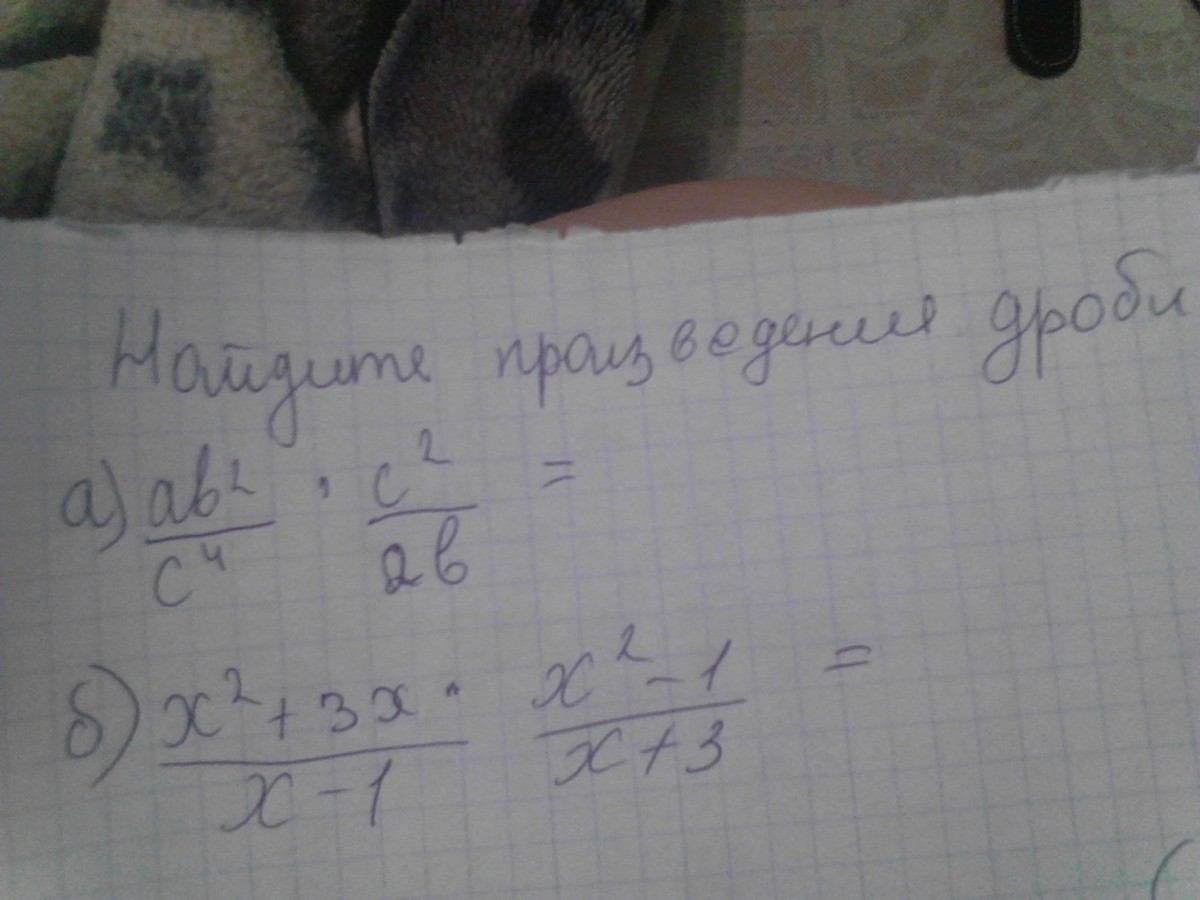 Найдите произведения дроби
а) ab²/c⁴ · c²/2b =
б) x²+3x/x-1 · x²-1/x+3 =